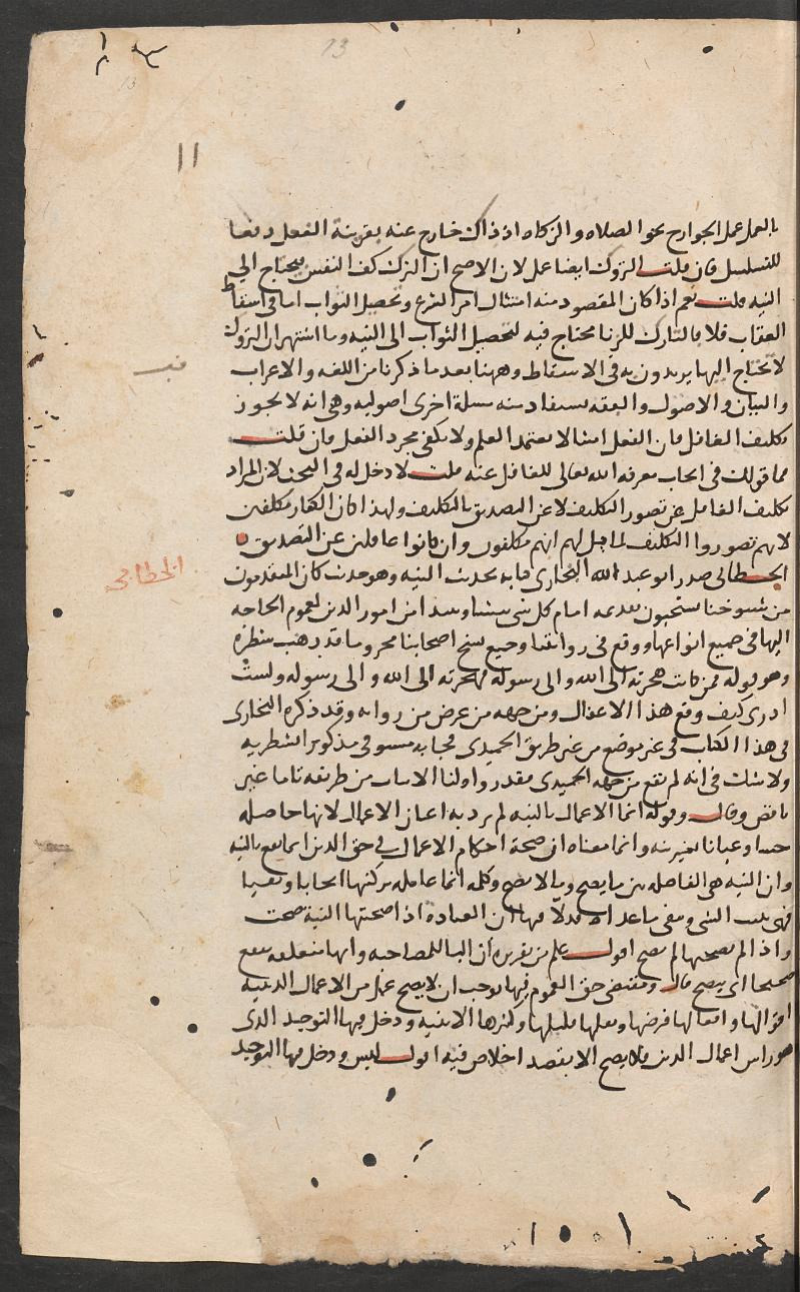 13
١١
بالعمل عمل الجوارح نحو الصلاه والزكاه اذ ذاك خارج عنه بقرينة الفعل دفعا
للتسلسل فان قلت التروك ايضا عمل لان الاصح ان الترك كف النفس فيحتاج الى
النيه قلت نعم اذا كان المقصود منه امتثال امر الشرع وتحصيل الثواب اما فى اسقاط
العقاب فلا فالتارك للزنا محتاج فيه لتحصيل الثواب الى النيه وما اشتهر ان التروك
لا تحتاج اليها يريدون به فى الاسقاط وههنا بعد ما ذكرنا من اللغه والاعراب
والبيان والاصول والفقه يستفاد منه مسلة اخرى اصوليه وهى انه لا يجوز
تكليف الغافل فان الفعل امتثالا يعتمد العلم ولا يكفى مجرد الفعل فان قلت
فما قولك فى ايجاب معرفه الله تعالى للغافل عنه قلت لا دخل له فى البحث لان المراد
تكليف الغافل عن تصور التكليف لا عن التصديق بالتكليف ولهذا كان الكفار مكلفين
لانهم تصوروا التكليف لما قيل لهم انهم مكلفون وان كانوا غافلين عن التصديق
الخطابى صدر ابو عبد الله البخارى كتابه بحديث النيه وهو حديث كان المتقدمون
الخطابى
من شيوخنا يستحبون تقديمه امام كل شى ينشا ويبدا من امور الدين لعموم الحاجه
اليها فى جميع انواعها ووقع فى روايتنا وجميع نسخ اصحابنا محروما قد ذهب شطره
وهو قوله فمن كانت هجرته الى الله والى رسوله فهجرته الى الله والى رسوله ولست
ادرى كيف وقع هذا الاغفال ومن جهه من عرض من رواته وقد ذكره البخارى
فى هذا الكتاب فى غير موضع من غير طريق الحميدى فجا به مستوفى مذكورا بشطريه
ولا شك فى انه لم يقع من جهه الحميدى فقد رواه لنا الاثبات من طريقه تاما غير
ناقص وقال وقوله انما الاعمال بالنيه لم يرد به اعيان الاعمال لانها حاصله
حسا وعيانا بغير نيه وانما معناه ان صحة احكام الاعمال فى حق الدين انما تقع بالنيه
وان النيه هى الفاصله بين ما يصح وما لا يصح وكلمه انما عامله بركنيها ايجابا ونفيا
فهى تثبت الشى وتنفى ما عداه فدلالتها ان العبادة اذا صحبتها النية صحت
واذا لم تصحبها لم تصح اقول علم من تقريره ان البا للمصاحبه وانها متعلقه بتقع
صحيحا اى يصح قال ومقتضى حق العموم فيها يوجب ان لا يصح عمل من الاعمال الدينيه
اقوالها وافعالها فرضها ونفلها قليلها وكثيرها الا بنيه ودخل فيها التوحيد الذى
هو راس اعمال الدين فلا يصح الا بقصد اخلاص فيه اقول ليس ودخل فيها التوحيد